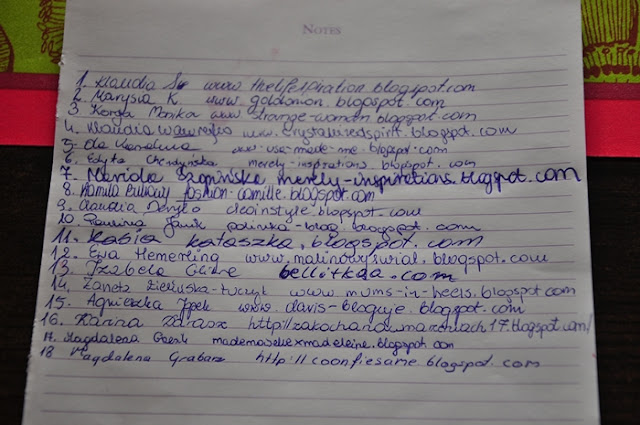 NOTES
1. Klaudia www.thelifespiration.blogspot.com
2. Marysia K. www.goldonion.blogspot.com
3. Monika www.strange-woman.blogspot.com
4. Klaudia www.crystals.redspirit.blogspot.com
5. Ola Karolina one-use-made-me.blogspot.com
6. Edyta merely-inspirations.blogspot.com
7. Mariola merely-inspirations.blogspot.com
8. Kamila fashion-camille.blogspot.com
9. Claudia cleoinstyle.blogspot.com
10. Paulina Janik polinka-blog.blogspot.com
11. Kasia kataszka.blogspot.com
12. Ewa Hemerling www.malinowyswiat.blogspot.com
13. Izabela bellitkaa.com
14. Żaneta www.mums-in-heels.blogspot.com
15. Agnieszka www.davis-bloguje.blogspot.com
16. Karina http://zakochanawmarzeniach17.blogspot.com/
17. Magdalena mademoisellexmadeleine.blogspot.com
18 Magdalena Grabarz http://coonfiesame.blogspot.com